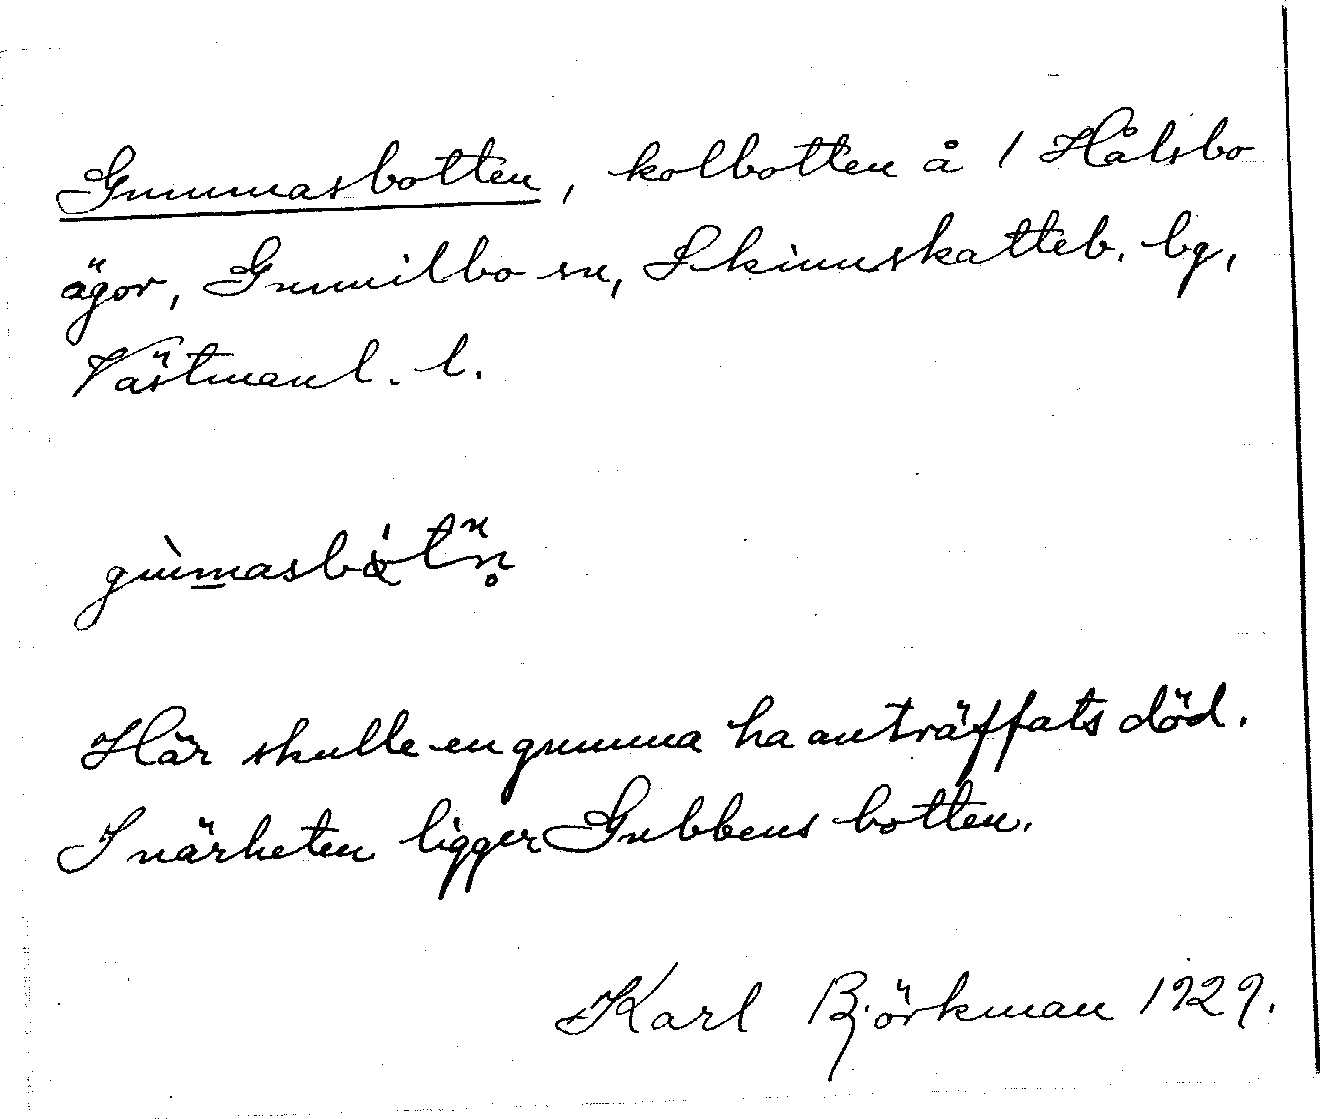 Gummasbotten, kolbotten å 1 Hålsbo
ägor, Gunnilbo sn, Skinnskatteb. bg,
Västmanl. l.
Här skulle en gumma ha anträffats död.
I närheten ligger Gubbens botten.
Karl Björkman 1929.